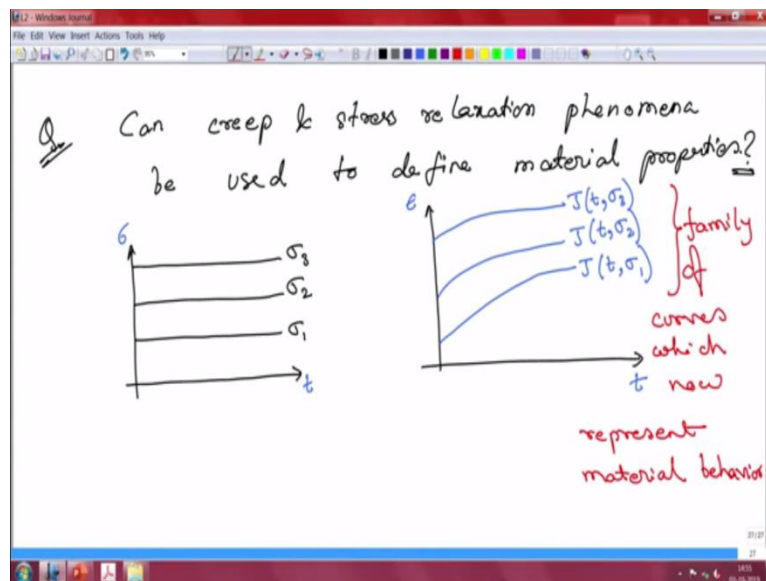 L2 - Windows Journal
File Edit View Insert Actions Tools Help
Q. Can creep & stress relaxation phenomena
be used to define material properties?
σ
σ3
σ2
σ1
t
ε
J(t,σ3)
J(t,σ2)
J(t,σ1)
t
family
of
curves
which
now
represent
material behavior
27/27
27
14:55